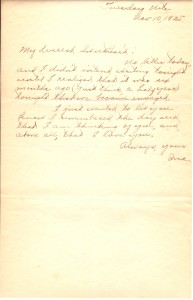 Tuesday Nite
Nov 10, 1925
My dearest Sweetheart:
No letter today
and I didn't intend writing tonight
until I realized that it was six
months ago (just think, a half year)
tonight that we became engaged.
I just wanted to let you
know I remembered the day and
that I am thinking of you, and
above all, that I love you.
Always yours